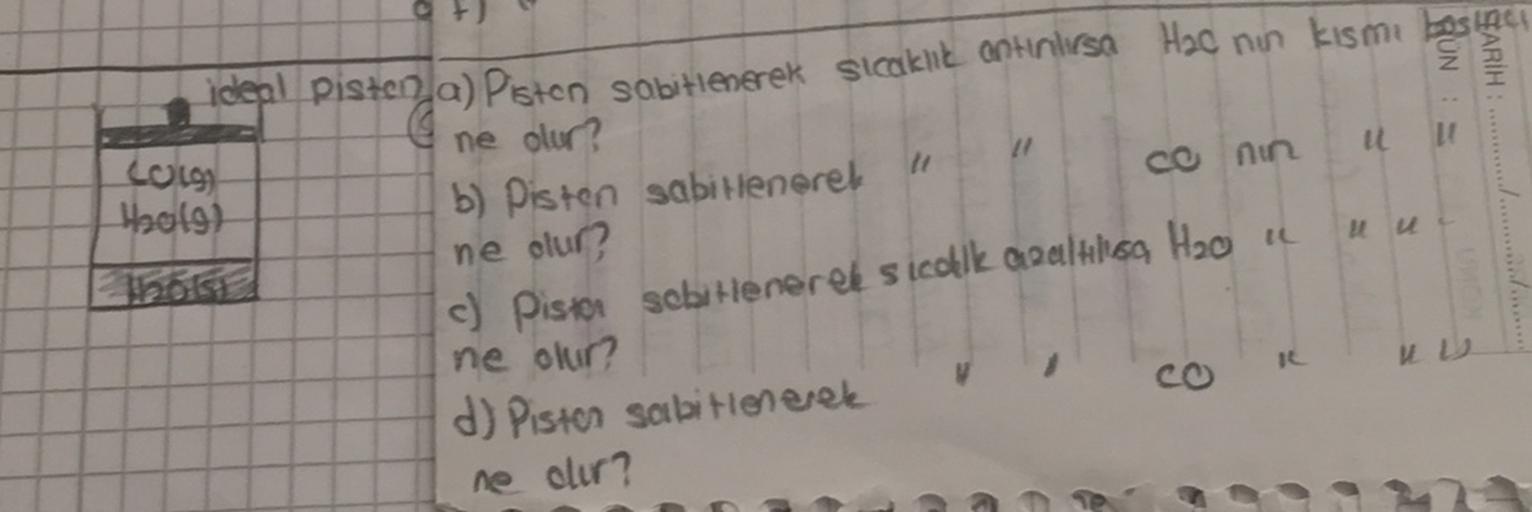 ideal piston
CO(g)
H2O(g)
H2O(s)
a) Piston sabitlenerek sıcaklık arttırılırsa H2O nın kısmi basıncı
ne olur?
b) Piston sabitlenerek " " CO nın " "
ne olur?
c) Piston sabitlenerek sıcaklık azaltılırsa H2O " " "
ne olur?
d) Piston sabitlenerek " " CO " " "
ne olur?
TARİH: ......./......./.......
GÜN :